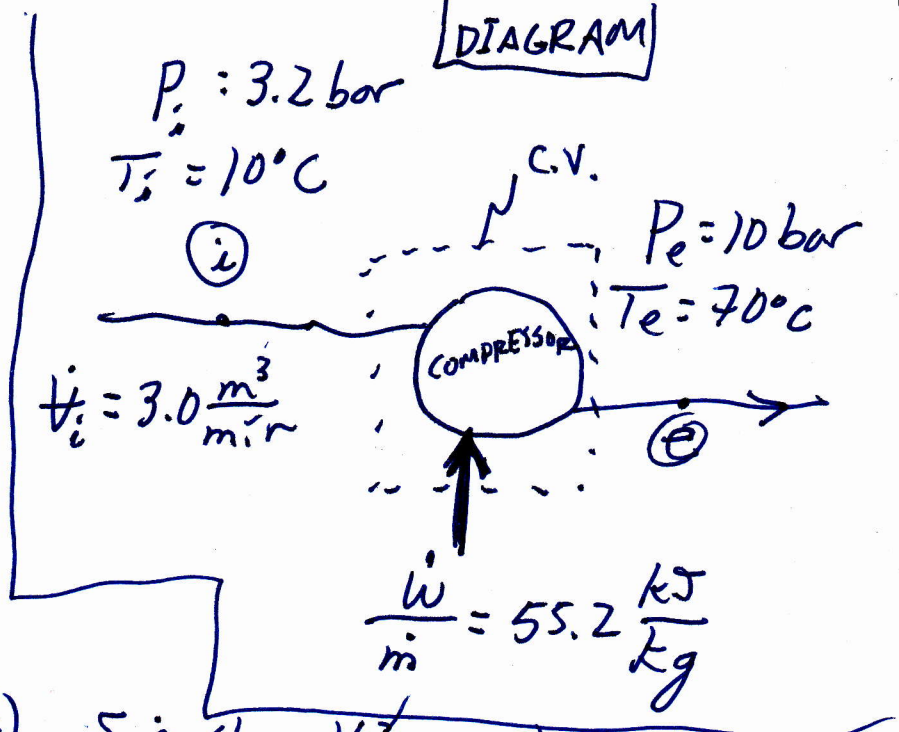 DIAGRAM
Pᵢ : 3.2 bar
Tᵢ = 10°C
C.V.
i
Pₑ = 10 bar
Tₑ = 70°C
COMPRESSOR
V̶̇ᵢ = 3.0 m³/min
e
Ẇ/ṁ = 55.2 kJ/kg